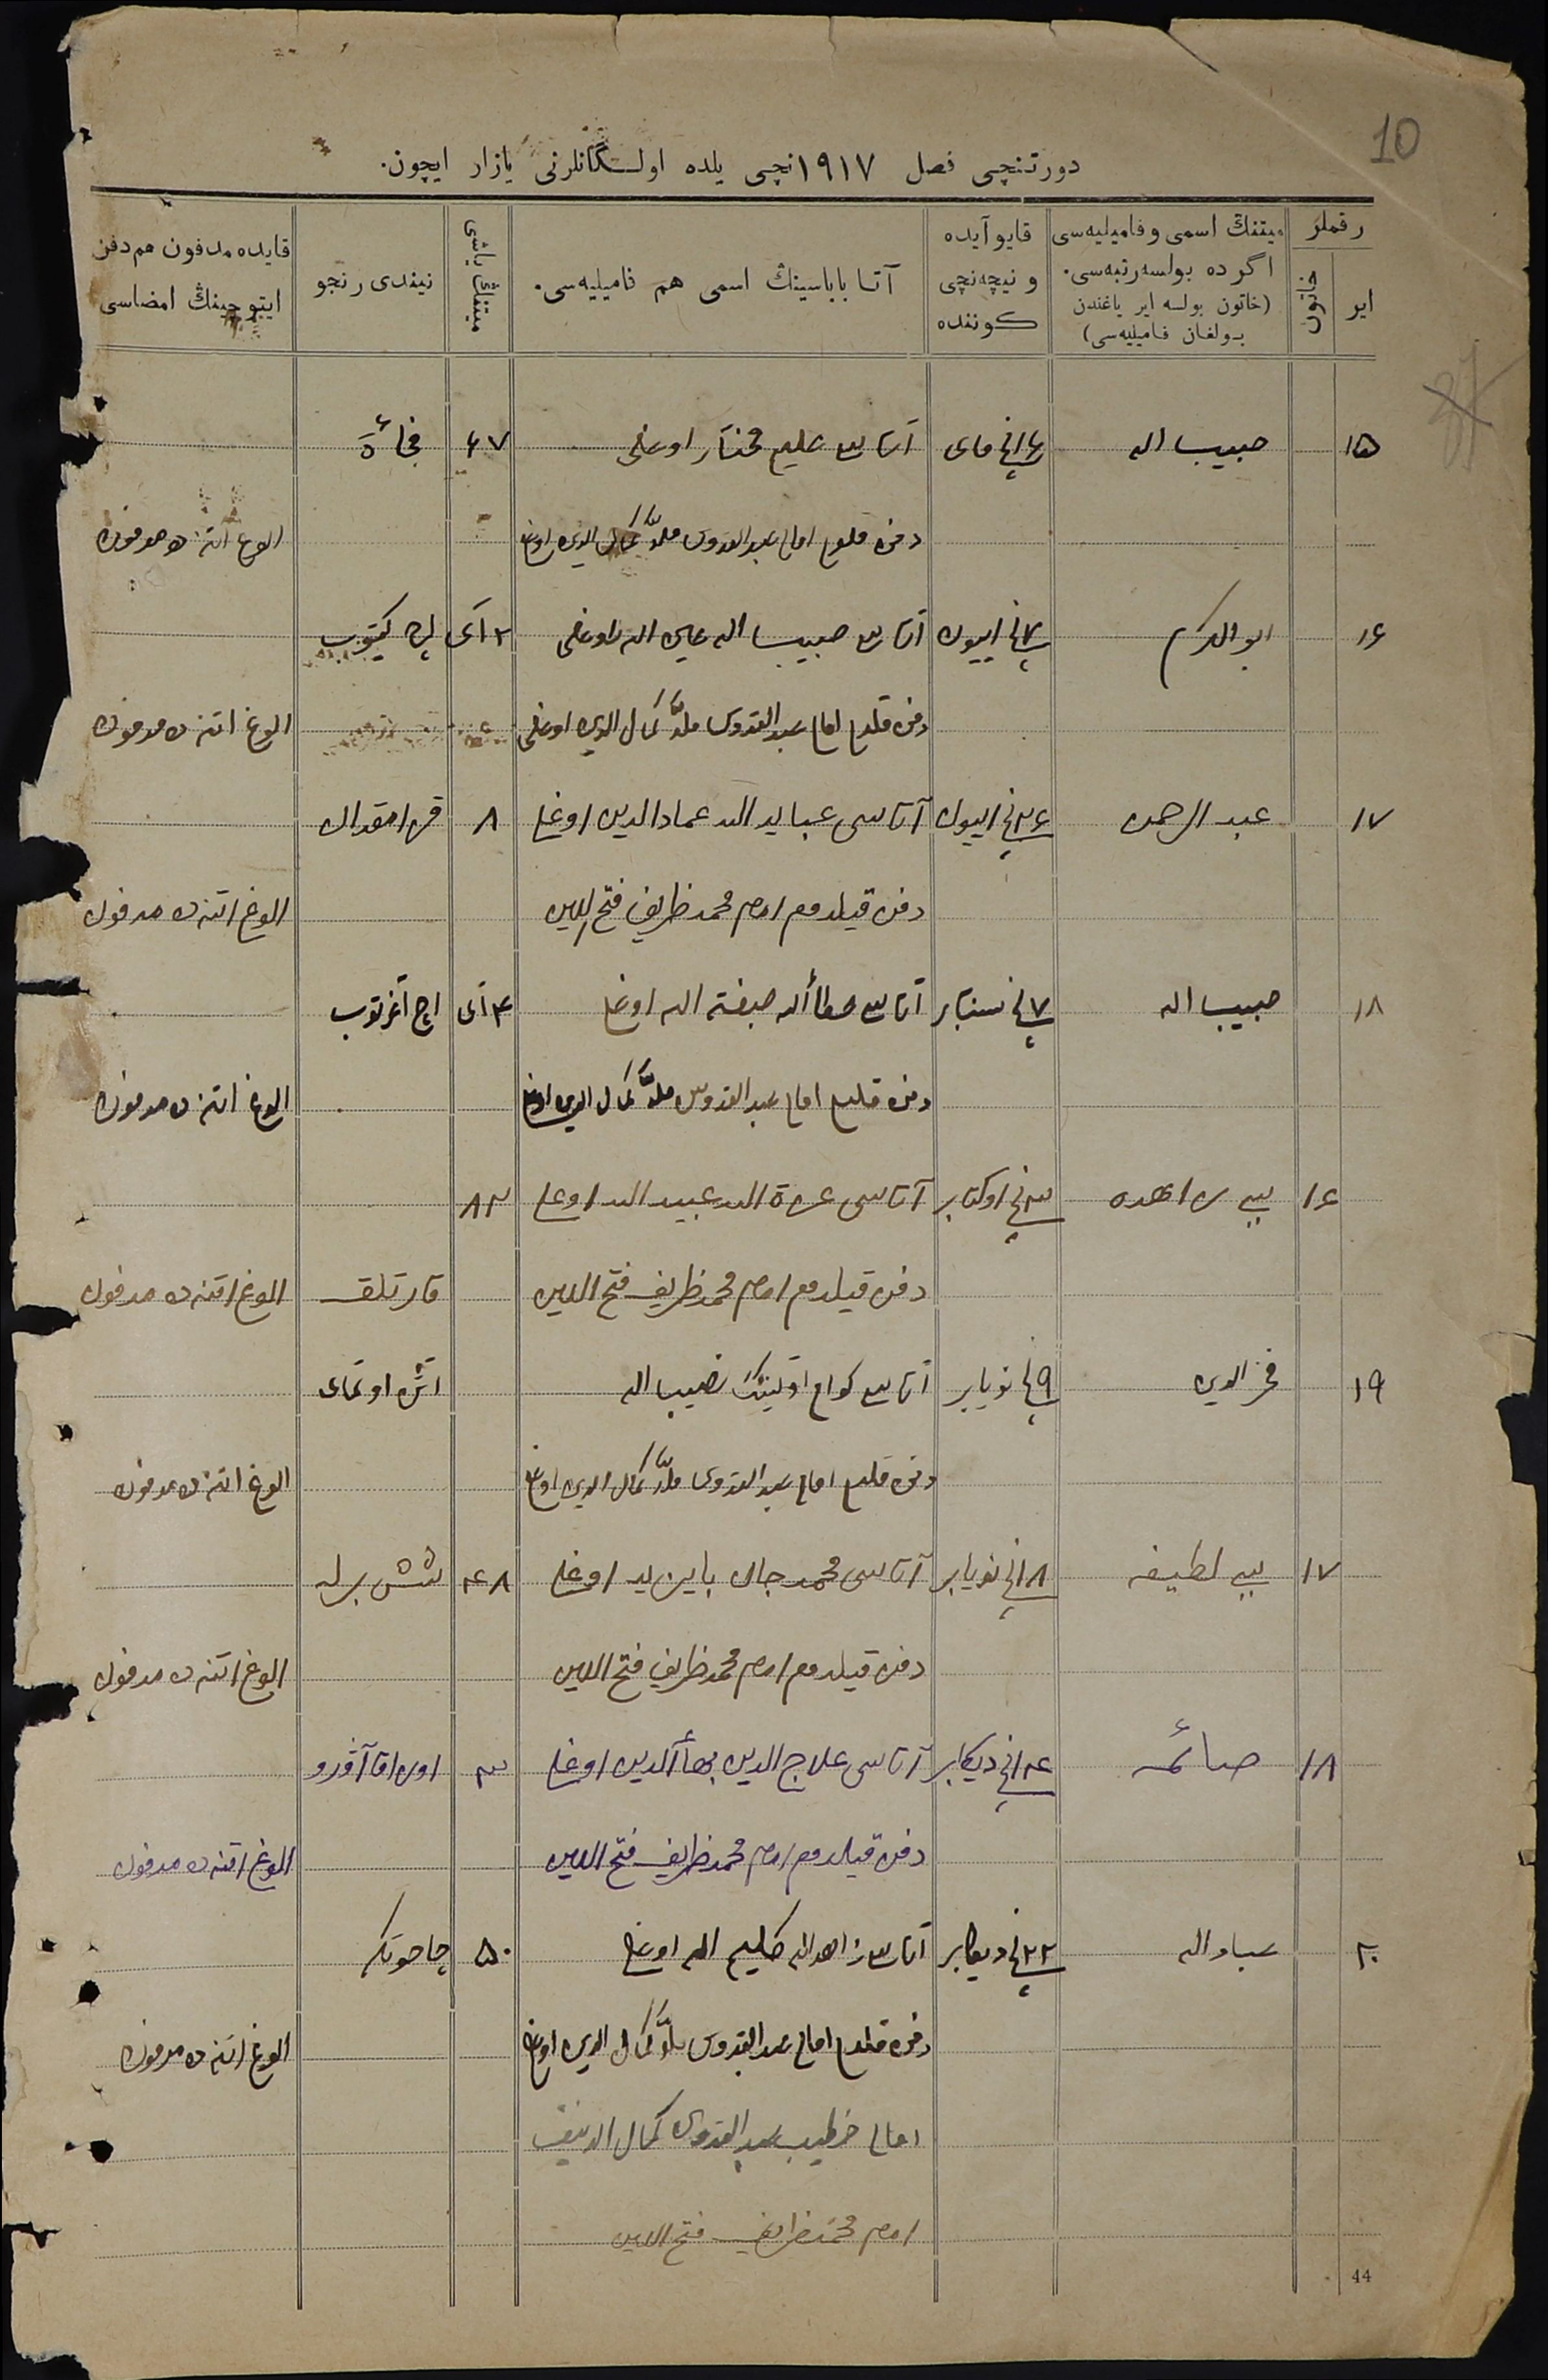 10
دورتنچی فصل ١٩١٧نچی یلده اولـگانلرنی یازار ایچون.
رقملر
ایر
خاتون
میتنڭ اسمی و فامیلیه‌سی
اگر ده بولسه رتبه‌سی.
(خاتون بولسه ایر یاغندن
بـولغان فامیلیه‌سی)
قایو آیده
و نیچه‌نچی
کوننده
آتـا باباسینڭ اسمی هم فامیلیه‌سی.
میتنڭ یاشی
نیندی رنجو
قایده مدفون هم دفن
ایتوچینڭ امضاسی
١٥ حبیب الله مای آتاسی علیم مختار اوغلی ٦٧ فجائة
دفن قلدم امام عبد القدوس ملا کمال الدین اوغلی الوغ اتنه ده مدفون
١٦ ابو الکرم ٧نچی اییون آتاسی حبیب الله اوغلی ٢ آی
دفن قلدم امام عبد القدوس ملا کمال الدین اوغلی الوغ اتنه ده مدفون
١٧ عبد الرحمن ٢٦نچی اییول آتاسی عباید الله عماد الدین اوغلی ٨
دفن قیلدم امام محمد ظریف فتح الدین الوغ اتنه ده مدفون
١٨ حبیب الله ٧نچی سنتابر آتاسی عطأ الله صبغة الله اوغلی ٤ آی اچ آغرتوب
دفن قلدم امام عبد القدوس ملا کمال الدین اوغلی الوغ اتنه ده مدفون
١٦ بیبی زاهده ٣نچی اوکتابر آتاسی عزة الله عبید الله اوغلی ٨٢
دفن قیلدم امام محمد ظریف فتح الدین قارتلق الوغ اتنه ده مدفون
١٩ فخر الدین ٩نچی نویابر آتاسی نصیب الله
دفن قلدم امام عبد القدوس ملا کمال الدین اوغلی الوغ اتنه ده مدفون
١٧ بیبی لطیفه ١٨نچی نویابر آتاسی محمد جان بایزید اوغلی ٤٨ شش برله
دفن قیلدم امام محمد ظریف فتح الدین الوغ اتنه ده مدفون
١٨ صائمه ١٤نچی دیکابر آتاسی علاج الدین بهأ الدین اوغلی ٣
دفن قیلدم امام محمد ظریف فتح الدین الوغ اتنه ده مدفون
٢٠ عباد الله ٢٢نچی دیکابر آتاسی زاهد الله کلیم الله اوغلی ٥٠ چاحوتکه
دفن قلدم امام عبد القدوس ملا کمال الدین اوغلی الوغ اتنه ده مدفون
امام خطیب عبد القدوس کمال الدینف
امام محمد ظریف فتح الدین
44